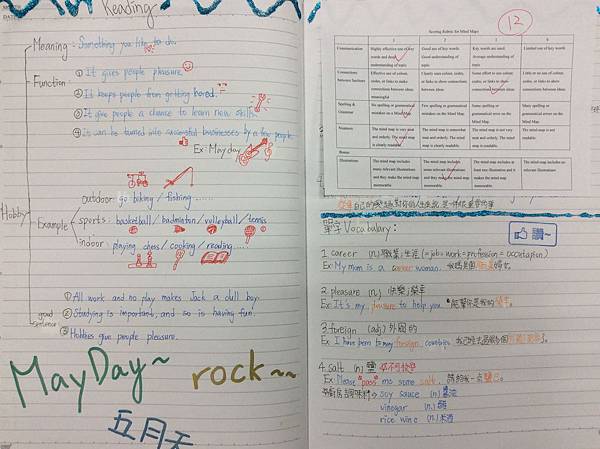 Reading
Meaning: Something you like to do.
Function:
① It gives people pleasure.
② It keeps people from getting bored.
③ It give people a chance to learn new skills.
④ It can be turned into successful businesses by a few people.
Ex: Mayday
Hobby
Example
outdoor: go biking / fishing ......
sports: basketball / badminton / volleyball / tennis
indoor: playing chess / cooking / reading.....
good sentence
① All work and no play makes Jack a dull boy.
② Studying is important, and so is having fun.
③ Hobbies give people pleasure.
MayDay~
rock~~
五月天
12
Scoring Rubric for Mind Maps
1 2 3 4
Communication Highly effective use of key words and Good use of key words. Good understanding of topic Key words are used. Average understanding of topic Limited use of key words
Connections between Sections Effective use of colour, codes, or links to make connections between ideas meaningful Clearly uses colour, codes, or links to show connections between ideas Some effort to use colour, codes, or links to show connections between ideas Little or no use of colour, codes, or links to show connections between ideas
Spelling & Grammar No spelling or grammatical mistakes on a Mind Map Few spelling or grammatical mistakes on the Mind Map. Some spelling or grammatical errors on the Mind Map Many spelling or grammatical errors on the Mind Map.
Neatness The mind map is very neat and orderly. The mind map is clearly readable. The mind map is somewhat neat and orderly. The mind map is clearly readable. The mind map is not neat and orderly. The mind map is readable. The mind map is not readable.
Bonus
Illustrations The mind map includes many relevant illustrations and they make the mind map memorable The mind map includes some relevant illustrations and they make the mind map memorable. The mind map includes at least one illustration and it makes the mind map memorable. The mind map includes no relevant illustrations
單字 Vocabulary:
讚~
1. career (n.) 職業;生涯 (=job=work=profession=occupation)
Ex: My mom is a career woman.
2. pleasure (n.) 快樂;榮幸
Ex: It's my pleasure to help you. 能幫你是我的榮幸。
3. foreign (adj.) 外國的
Ex: I have been to many foreign countries.
4. salt (n.) 鹽 ☆不可數
Ex: Please "pass" me some salt.
soy sauce (n.) 醬油
vinegar (n.) 醋
rice wine (n.) 米酒